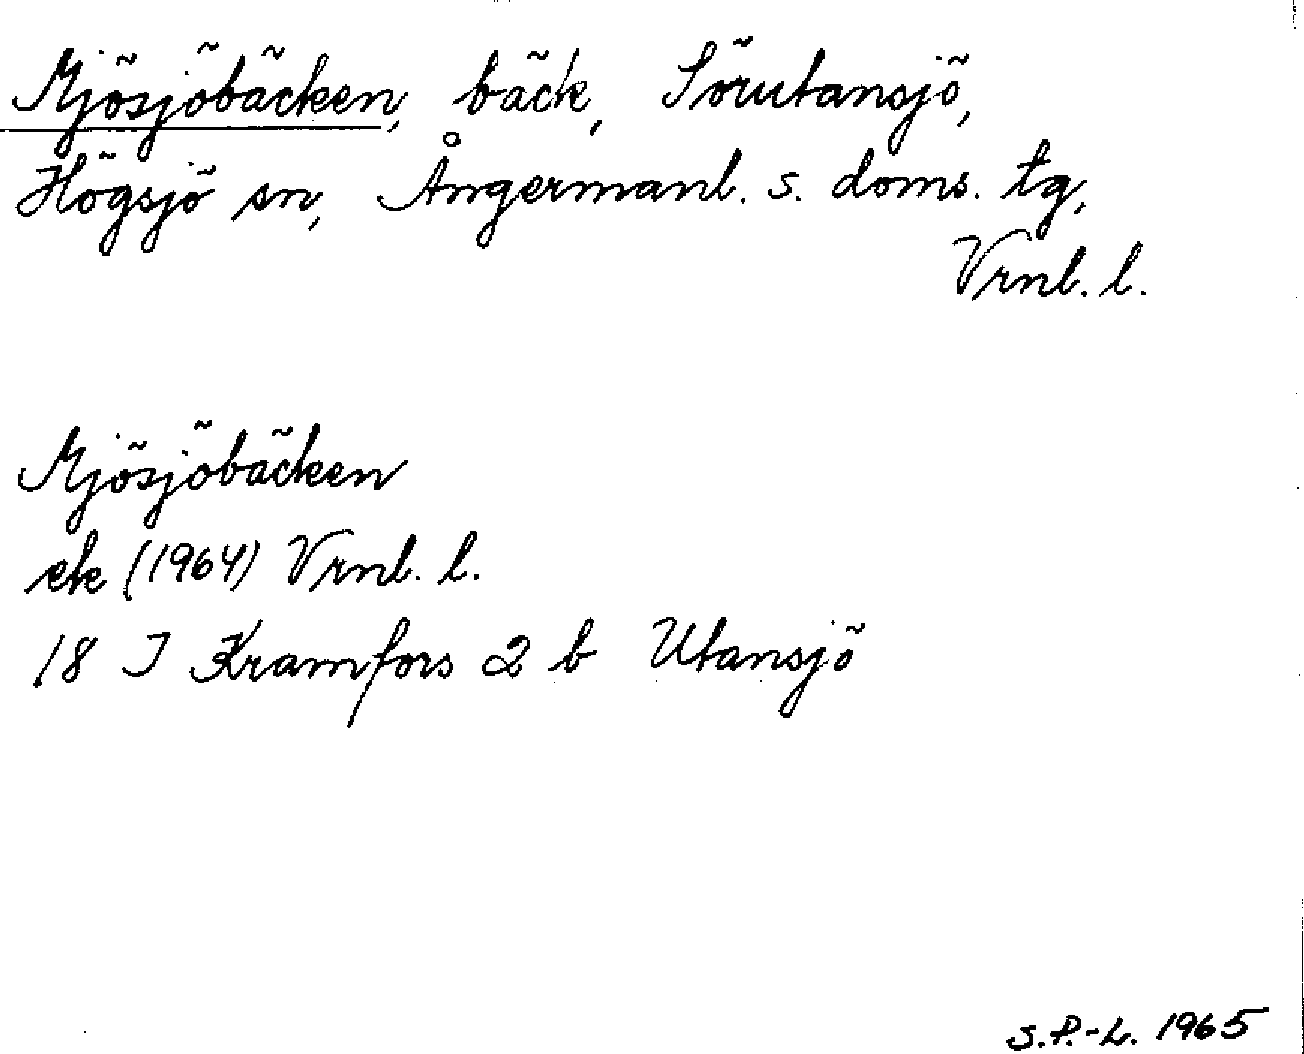 Mjösjöbäcken, bäck, Sörutansjö,
Högsjö sn, Ångermanl. s. doms. tg,
Vrnl. l.
Mjösjöbäcken
ek (1964) Vrnl. l.
18 I Kramfors 2 b Utansjö
S.P.-L. 1965